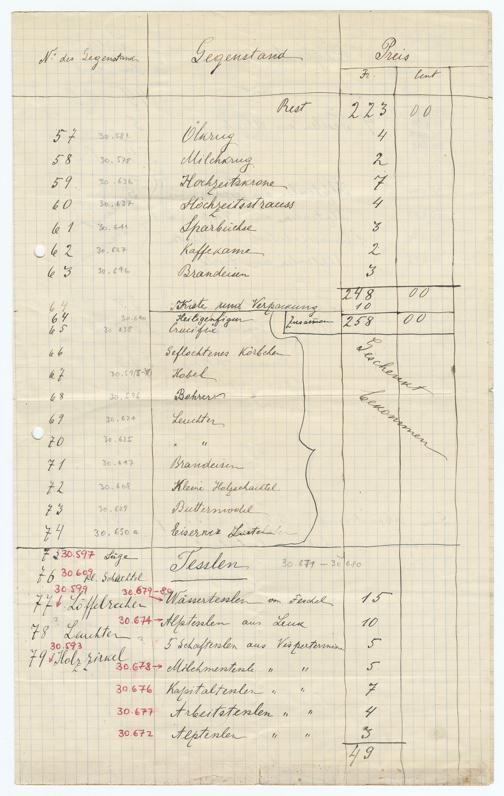 No des Gegenstand Gegenstand Preis
Fr. Cent
Rest 223 00
57 30.581 Ölkrug 4
58 30.578 Milchkrug 2
59 30.636 Hochzeitskrone 7
60 30.637 Hochzeitsstrauss 4
61 Sparbüchse 3
62 Kaffekanne 2
63 30.696 Brandeisen 3
248 00
64 Kiste und Verpackung 10
64 Heiligenfigur Zusammen 258 00
65 30.638 Crucifix
66 Geflochtenes Körbchen Geschenkt bekommen
67 Hobel
68 30.596 Bohrer
69 30.624 Leuchter
70 30.625 " "
71 30.647 Brandeisen
72 30.608 Kleine Holzschachtel
73 Buttermodel
74 30.650a Eiserner
75 30.597 Säge Tesslen 30.671 - 30.680
76 30.609 kl. Schachtel
30.599 30.679-80
77 Löffelrechen → Wässertesslen von Feschel 15
78 Leuchter 30.674 → Alptesslen aus Leuk 10
30.593 5 Schaftesslen aus Visperterminen 5
79 Holzzirkel
30.678 → Milchmesstessle " " 5
30.676 Kapitaltesslen " " 7
30.677 Arbeitstesslen " " 4
30.672 Alptesslen " " 3
49